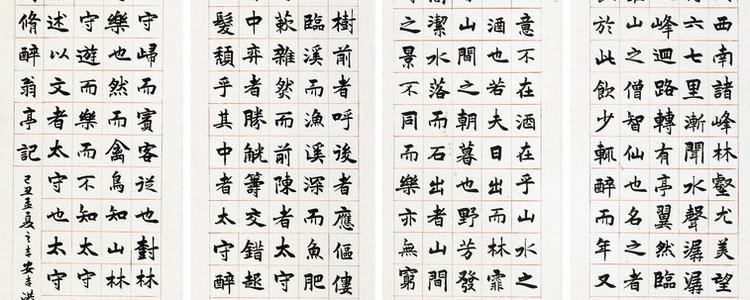 西南諸峰林壑尤美望
六七里漸聞水聲潺
峰迴路轉有亭翼然臨
山之僧智仙也名之者
於此飲少輒醉而年又
意不在酒在乎山水之
酒也若夫日出而林霏
山間之朝暮也野芳發
潔水落而石出者山間
之景不同而樂亦無窮
樹前者呼後者應傴僂
臨溪而漁溪深而魚肥
蔌雜然而前陳者太守
中弈者勝觥籌交錯起
髮頹乎其中者太守醉
守歸而賓客從也樹林
樂也然而禽鳥知山林
守遊而樂而不知太守
述以文者太守也太守
脩醉翁亭記
己丑孟夏之吉安吉洪